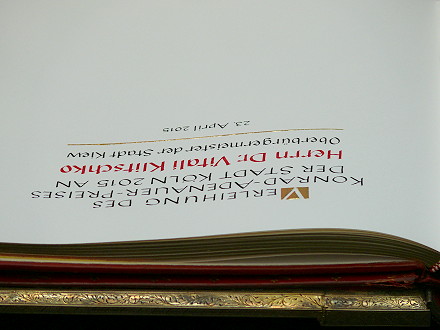 VERLEIHUNG DES
KONRAD-ADENAUER-PREISES
DER STADT KÖLN 2015 AN
Herrn Dr. Vitali Klitschko
Oberbürgermeister der Stadt Kiew
23. April 2015